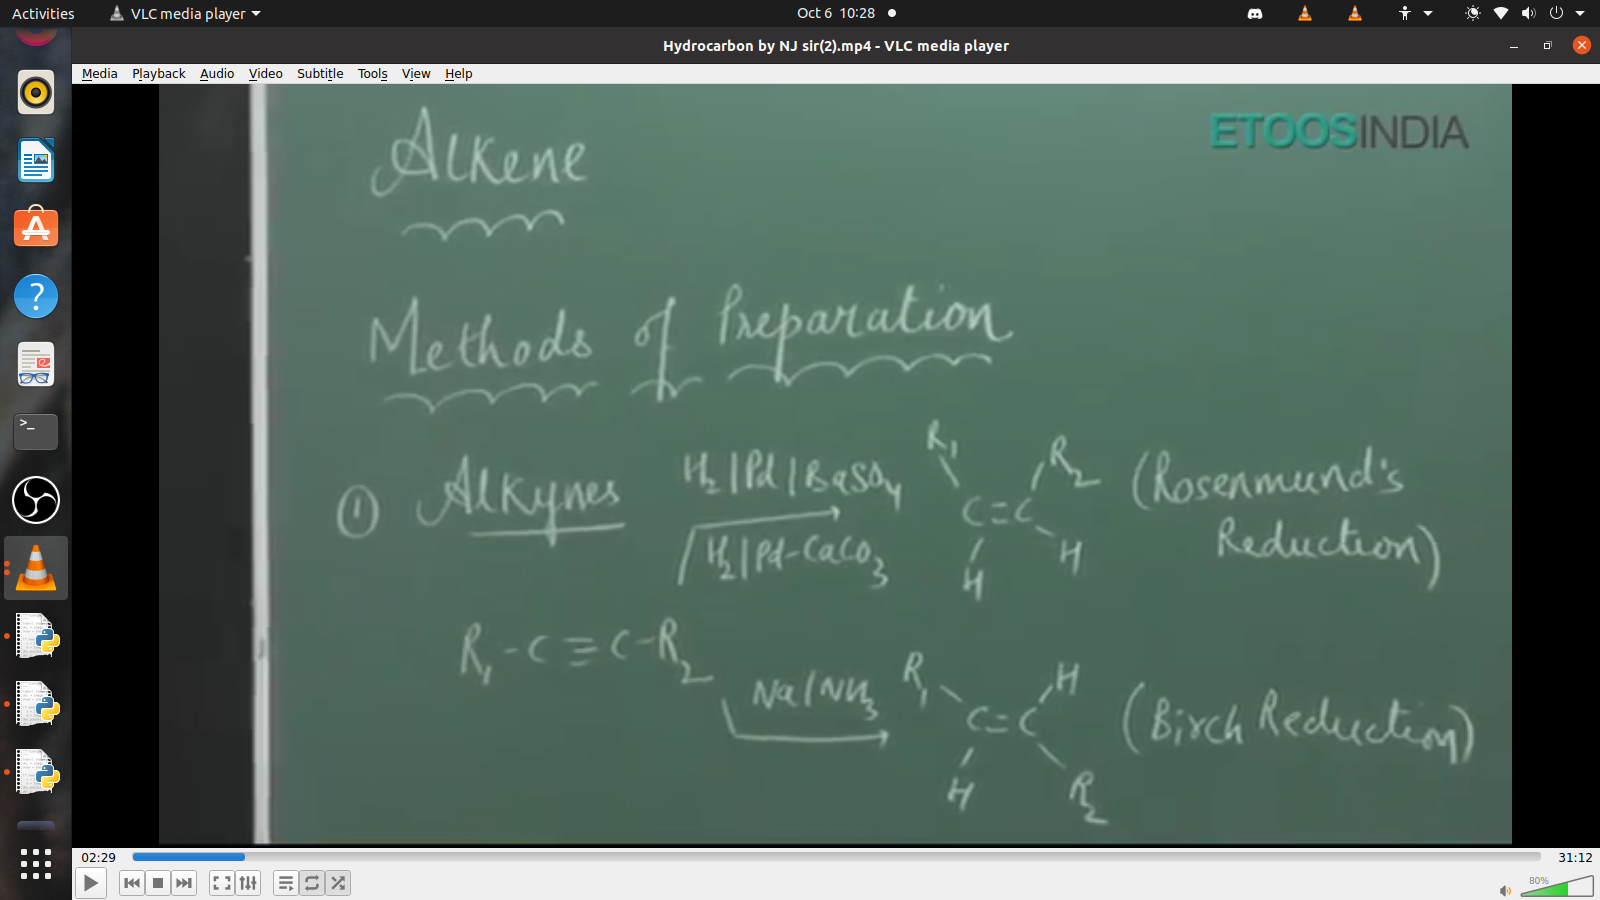 Activities VLC media player Oct 6 10:28
Hydrocarbon by NJ sir(2).mp4 - VLC media player
Media Playback Audio Video Subtitle Tools View Help
ETOOSINDIA
Alkene
Methods of Preparation
① Alkynes H₂|Pd|BaSO₄ R₁ R₂ (Rosenmund's
C=C Reduction)
H₂|Pd-CaCO₃ H H
R₁-C≡C-R₂
Na|NH₃ R₁ H
C=C (Birch Reduction)
H R₂
02:29 31:12
80%